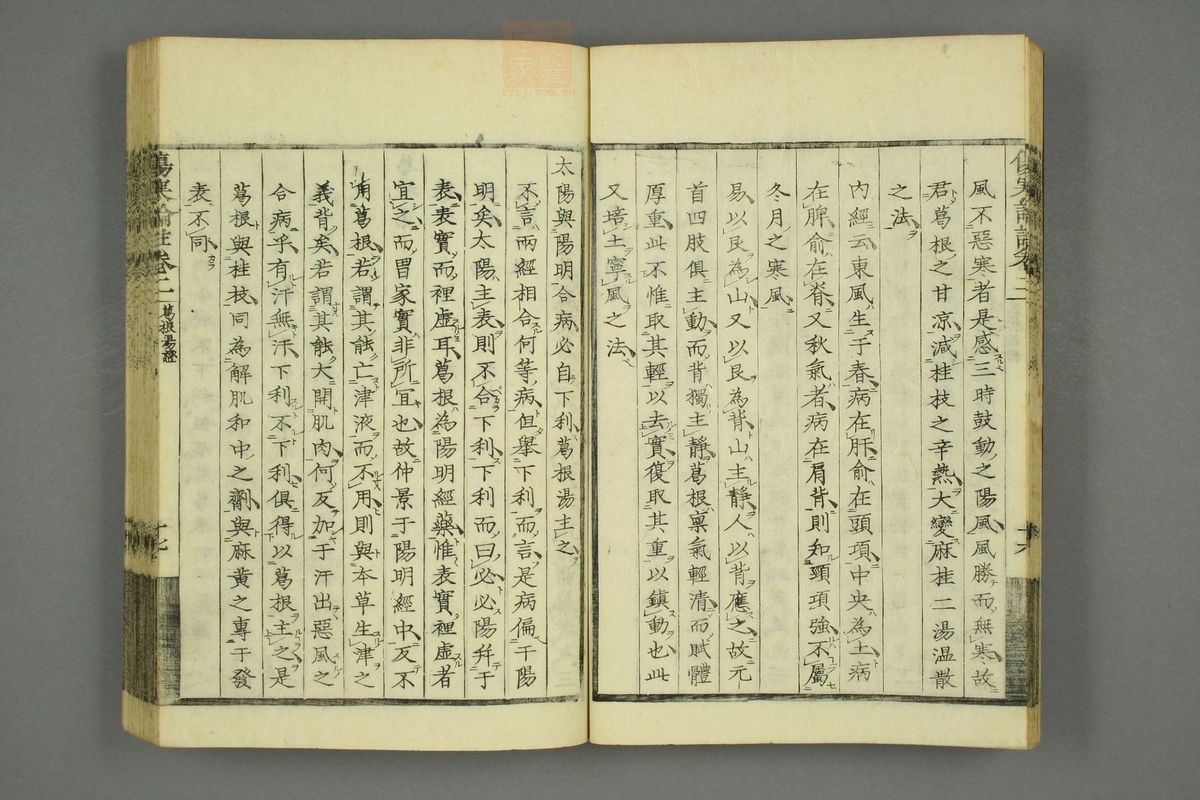 風不惡寒者是感三時鼓動之陽風風勝而無寒故
君葛根之甘凉減桂枝之辛熱大變麻桂二湯温散
之法
內經云東風生于春病在肝俞在頭項中央為土病
在脾俞在脊又秋氣者病在肩背則知頸項強不屬
冬月之寒風
易以艮為山又以艮為背山主靜人以背應之故元
首四肢俱主動而背獨主靜葛根稟氣輕清而賦體
厚重此不惟取其輕以去實復取其重以鎮動也此
又培土寧風之法
太陽與陽明合病必自下利葛根湯主之
不言兩經相合何等病但舉下利而言是病偏于陽
明矣太陽主表則不合下利下利而曰必必陽并于
表表實而裡虛耳葛根為陽明經藥惟表實裡虛者
宜之而胃家實非所宜也故仲景于陽明經中反不
用葛根若謂其能亡津液而不用則與本草生津之
義背矣若謂其能大開肌肉何反加于汗出惡風之
合病乎有汗無汗下利不下利俱得以葛根主之是
葛根與桂枝同為解肌和中之劑與麻黄之專于發
表不同
傷寒論註卷二 葛根湯證